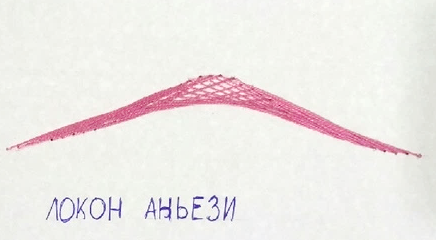 ЛОКОН АНЬЕЗИ